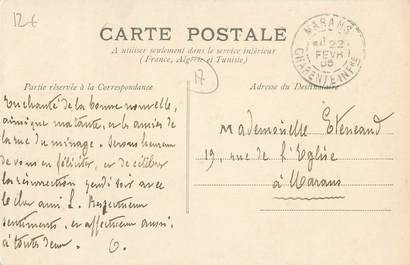 12 €
CARTE POSTALE
A utiliser seulement dans le service intérieur
(France, Algérie et Tunisie)
MARANS
22
FEVR
05
CHARENTE INFRE
Partie réservée à la Correspondance
Adresse du Destinataire
Enchanté de la bonne nouvelle,
ainsi que ma tante, et les amies de
la rue du minage. Serons heureux
de vous en féliciter, et de célébrer
la résurrection jeudi soir avec
le cher ami L. Respectueux
sentiments, et affectueux aussi,
à toutes deux. G.
Mademoiselle
19, rue de l'Eglise
à Marans